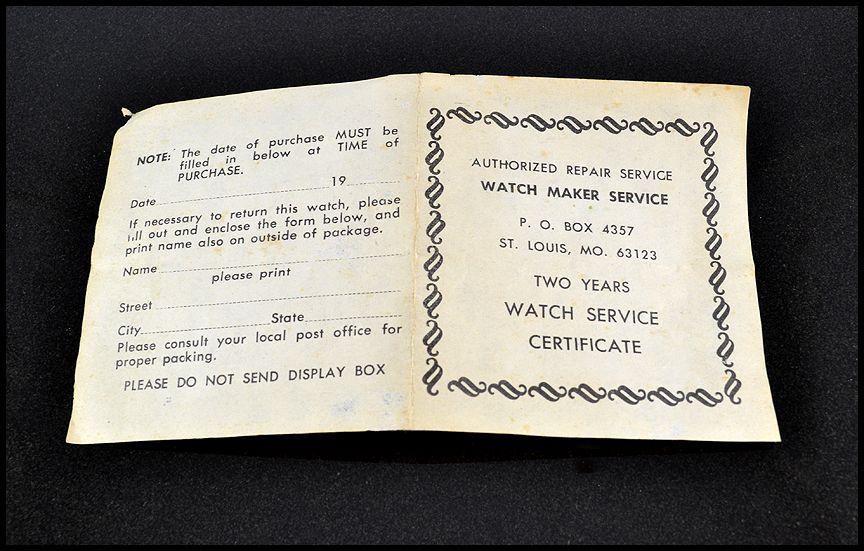 NOTE: The date of purchase MUST be
filled in below at TIME of
PURCHASE.
Date 19
If necessary to return this watch, please
fill out and enclose the form below, and
print name also on outside of package.
Name
please print
Street
City State
Please consult your local post office for
proper packing.
PLEASE DO NOT SEND DISPLAY BOX
AUTHORIZED REPAIR SERVICE
WATCH MAKER SERVICE
P. O. BOX 4357
ST. LOUIS, MO. 63123
TWO YEARS
WATCH SERVICE
CERTIFICATE